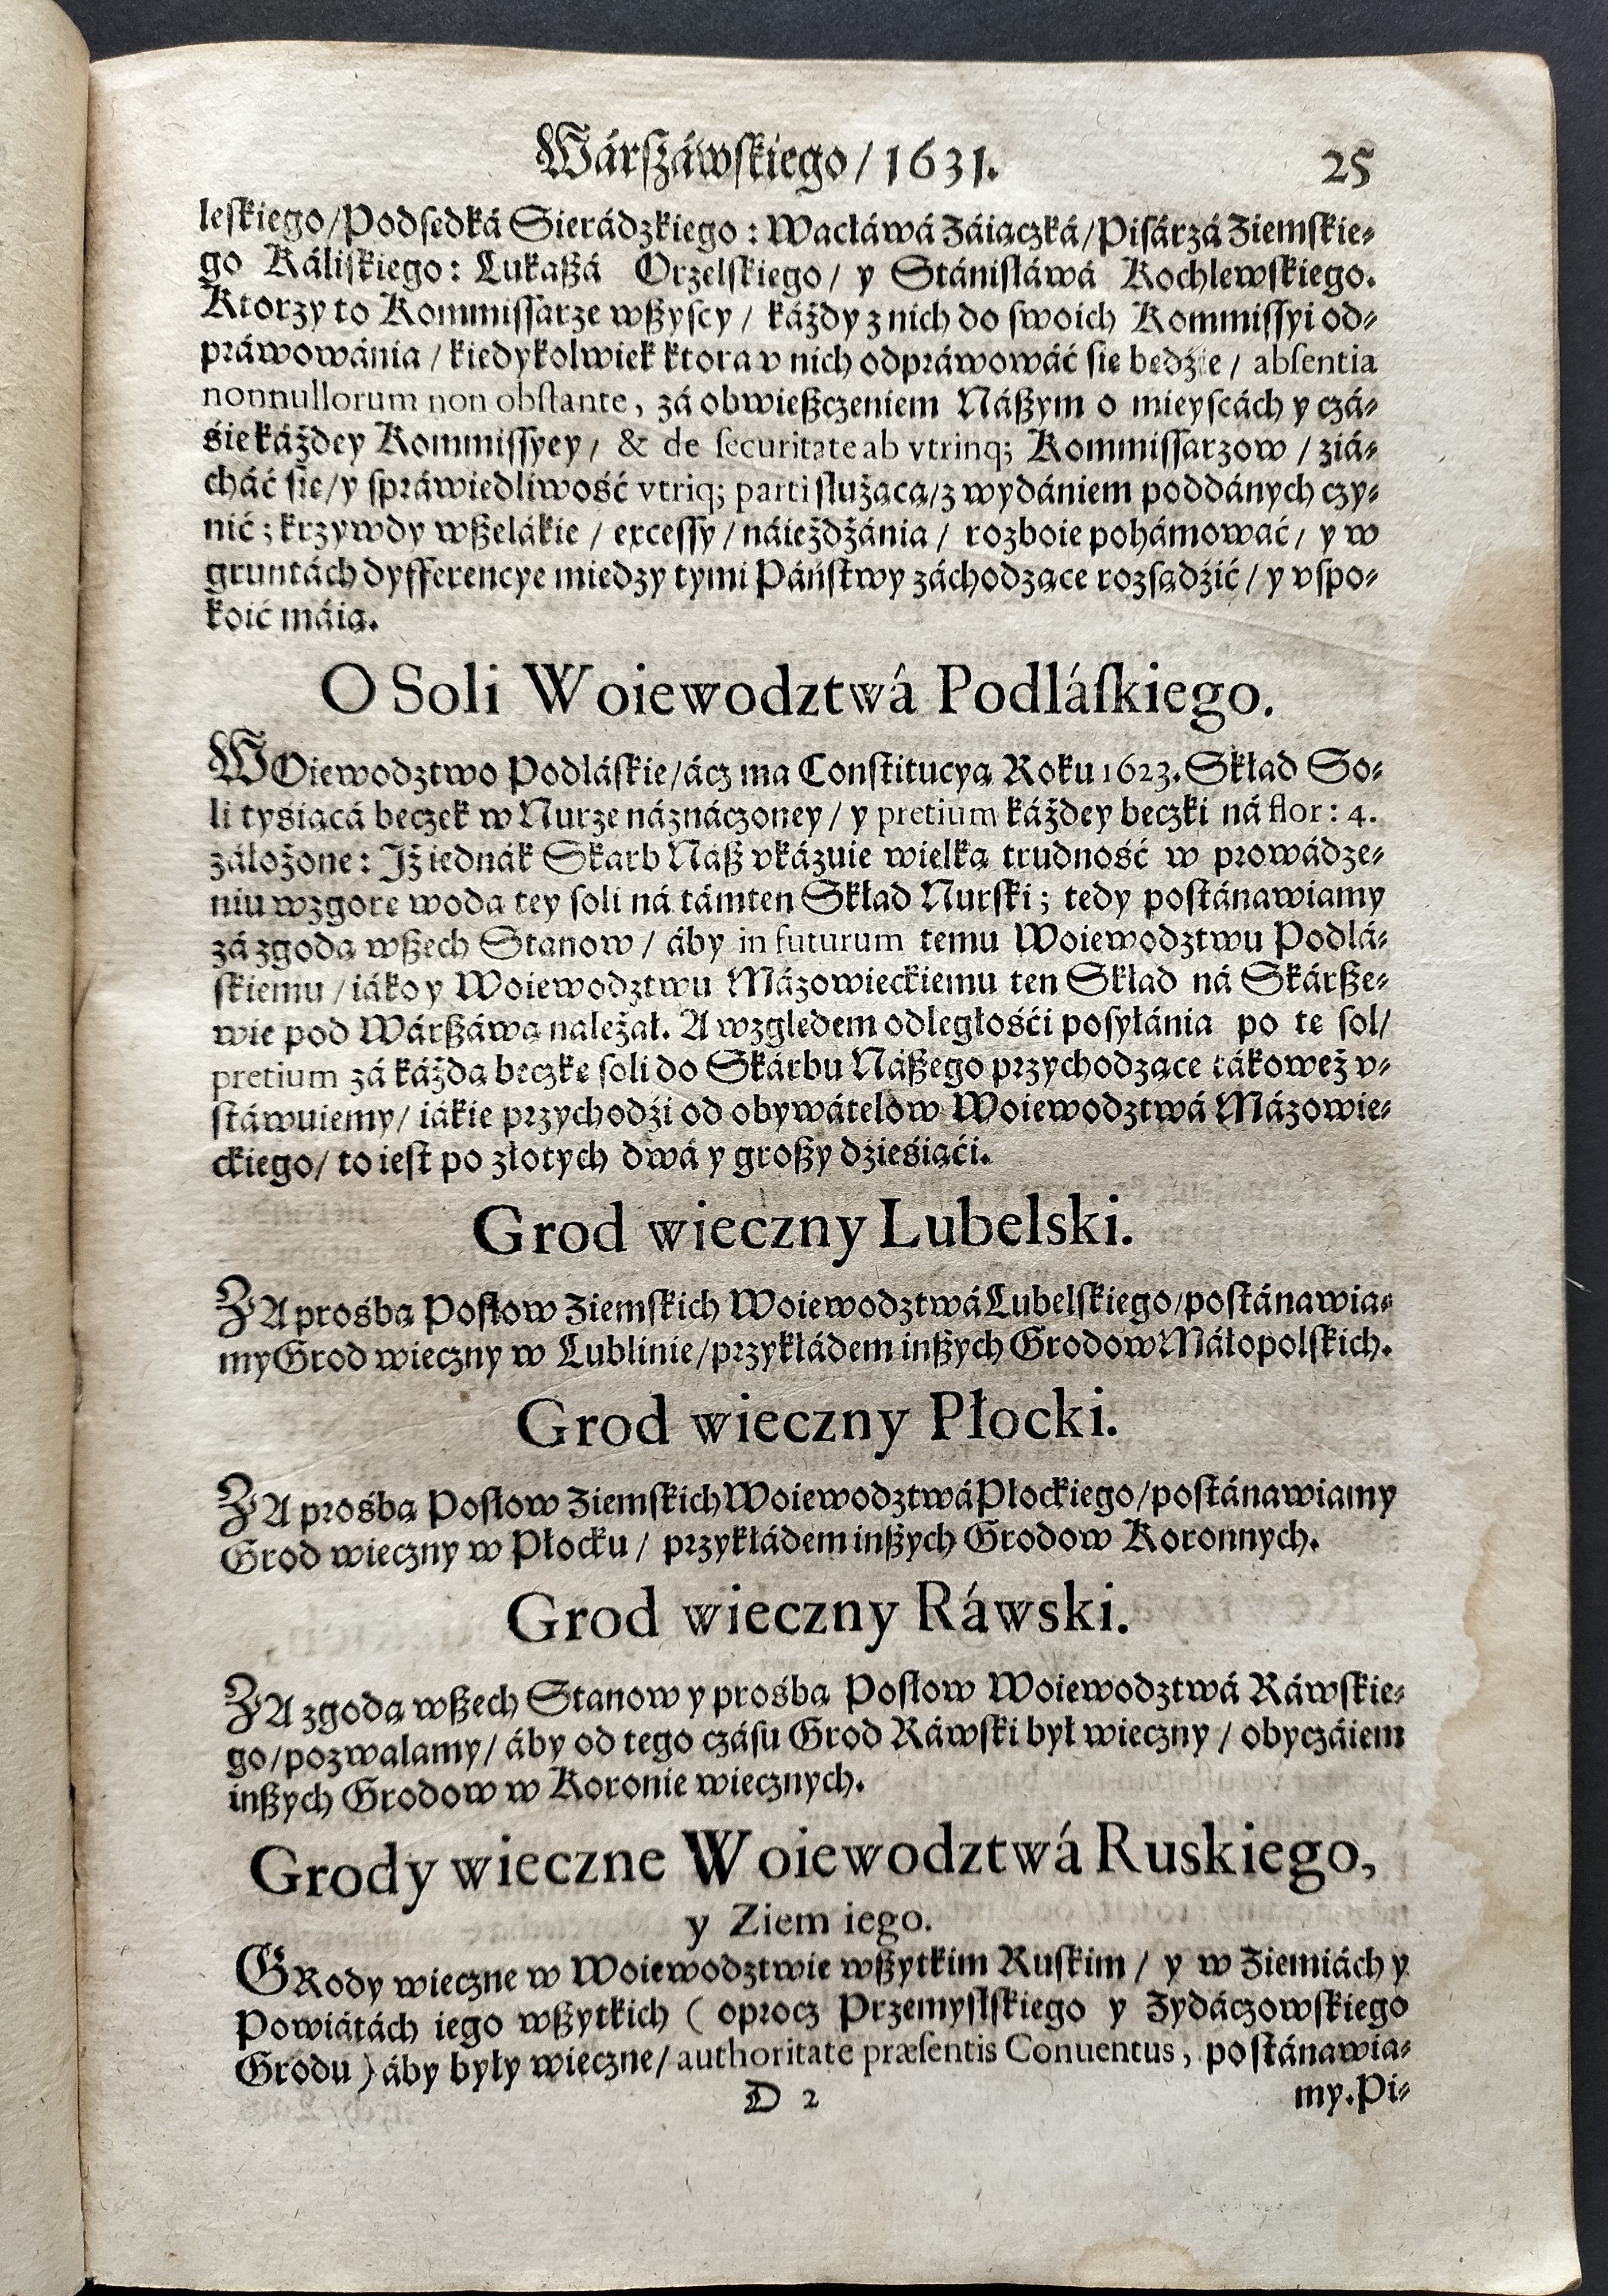 Wárſzáwſkiego / 1631. 25
leſkiego / Podſedká Sierádzkiego : Wacłáwá Záiączká / Piſárzá Ziemſkie⸗
go Káliſkiego : Lukaſzá Orzelſkiego / y Stániſłáwá Kochlewſkiego.
Ktorzy to Kommiſſarze wſzyſcy / káżdy z nich do ſwoich Kommiſſyi od⸗
práwowánia / kiedykolwiek ktora v nich odpráwowáć ſię będźie / abſentia
nonnullorum non obſtante, zá obwieſzczeniem Náſzym o mieyſcách y czá⸗
śie káżdey Kommiſſyey / & de ſecuritate ab vtrinq; Kommiſſarzow / ziá⸗
cháć ſie / y ſpráwiedliwość vtriq; parti służącą / z wydániem poddánych czy⸗
nić ; krzywdy wſzelákie / exceſſy / náieżdżánia / rozboie pohámować / y w
gruntách dyfferencye miedzy tymi Páńſtwy záchodzące rozſądźić / y vſpo⸗
koić máią.
O Soli Woiewodztwá Podláſkiego.
WOiewodztwo Podláſkie / ácz ma Conſtitucyą Roku 1623. Skład So⸗
li tyśiącá beczek w Nurze náznáczoney / y pretium káżdey beczki ná flor : 4.
záłożone : Iż iednák Skarb Náſz vkázuie wielką trudność w prowádze⸗
niu wzgorę wodą tey ſoli ná támten Skład Nurſki ; tedy poſtánawiamy
zá zgodą wſzech Stanow / áby in futurum temu Woiewodztwu Podlá⸗
ſkiemu / iáko y Woiewodztwu Mázowieckiemu ten Skład ná Skárſze⸗
wie pod Wárſzáwą należał. A względem odległośći poſyłánia po tę ſol /
pretium zá káżdą beczkę ſoli do Skárbu Náſzego przychodzące tákoweż v⸗
ſtáwuiemy / iákie przychodźi od obywátelow Woiewodztwá Mázowie⸗
ckiego / to ieſt po złotych dwá y groſzy dźieśiąći.
Grod wieczny Lubelski.
ZA prośbą Poſłow Ziemſkich Woiewodztwá Lubelſkiego / poſtánawia⸗
my Grod wieczny w Lublinie / przykłádem inſzych Grodow Máłopolſkich.
Grod wieczny Płocki.
ZA prośbą Poſłow Ziemſkich Woiewodztwá Płockiego / poſtánawiamy
Grod wieczny w Płocku / przykłádem inſzych Grodow Koronnych.
Grod wieczny Ráwski.
ZA zgodą wſzech Stanow y prośbą Poſłow Woiewodztwá Ráwſkie⸗
go / pozwalamy / áby od tego czáſu Grod Ráwſki był wieczny / obyczáiem
inſzych Grodow w Koronie wiecznych.
Grody wieczne Woiewodztwá Ruskiego,
y Ziem iego.
GRody wieczne w Woiewodztwie wſzytkim Ruſkim / y w Ziemiách y
Powiátách iego wſzytkich ( oprocz Przemyſlſkiego y Zydáczowſkiego
Grodu ) áby były wieczne / authoritate præſentis Conuentus, poſtánawia⸗
D 2 my. Pi⸗